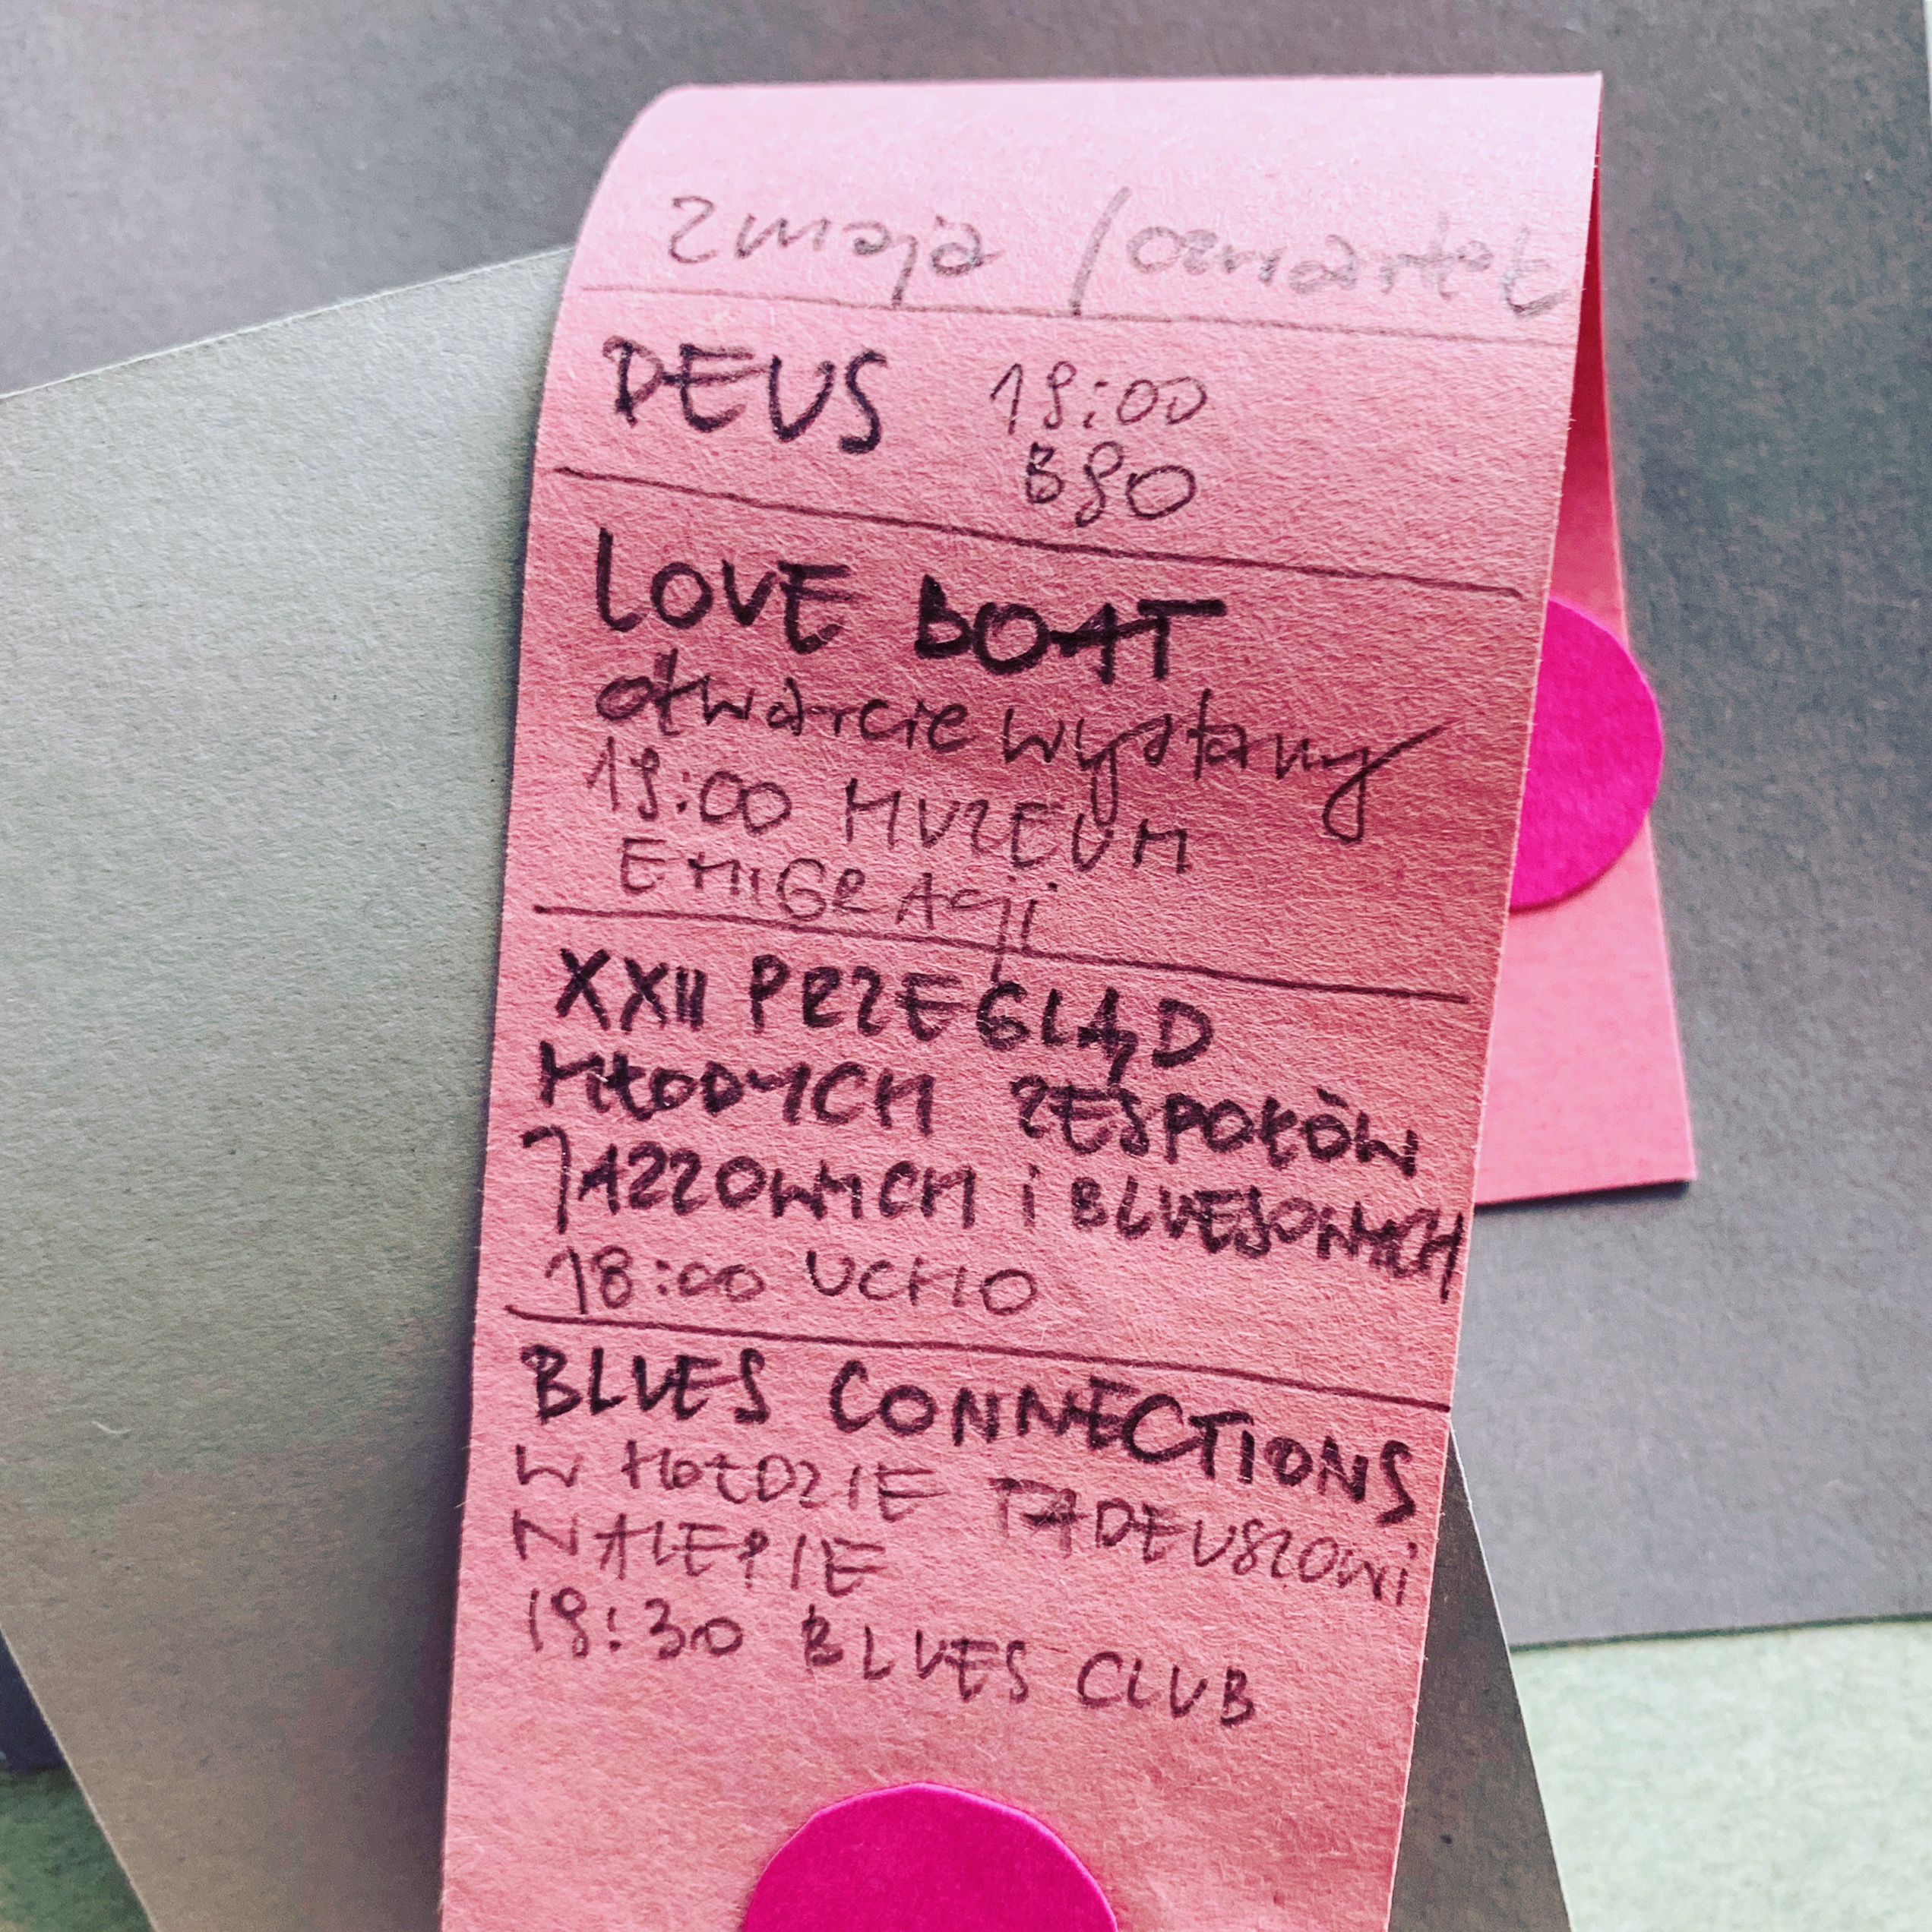 2 maja / czwartek
DEUS 19:00
B90
LOVE BOAT
otwarcie wystawy
19:00 MUZEUM
EMIGRACji
XXII PRZEGLĄD
MŁODYCH ZESPOŁÓW
JAZZOWYCH i BLUESOWYCH
18:00 UCHO
BLUES CONNECTIONS
W HOŁDZIE TADEUSZOWi
NALEPIE
19:30 BLUES CLUB